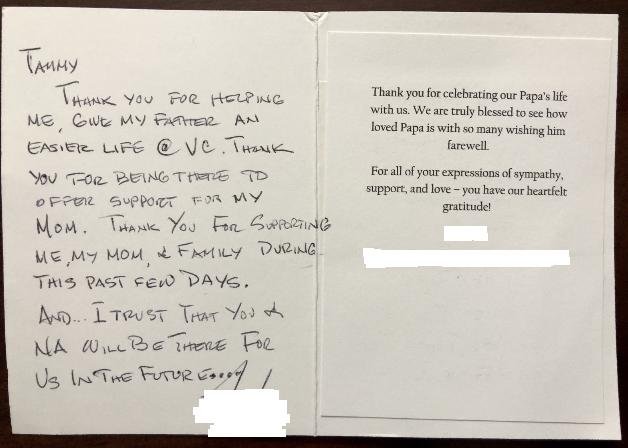 TAMMY
THANK YOU FOR HELPING
ME, GIVE MY FATHER AN
EASIER LIFE @ VC. THANK
YOU FOR BEING THERE TO
OFFER SUPPORT FOR MY
MOM. THANK YOU FOR SUPPORTING
ME, MY MOM, & FAMILY DURING
THIS PAST FEW DAYS.
AND... I TRUST THAT YOU &
NA WILL BE THERE FOR
US IN THE FUTURE....
Thank you for celebrating our Papa's life
with us. We are truly blessed to see how
loved Papa is with so many wishing him
farewell.
For all of your expressions of sympathy,
support, and love – you have our heartfelt
gratitude!